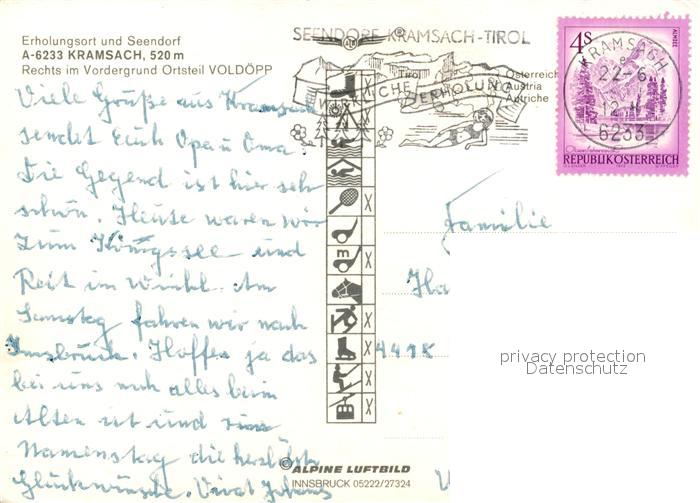 Erholungsort und Seendorf
A-6233 KRAMSACH, 520 m
Rechts im Vordergrund Ortsteil VOLDÖPP
SEENDORF KRAMSACH-TIROL
WIRKLICHE ERHOLUNG
Tirol
Österreich
Austria
Autriche
4S
ALMSEE
REPUBLIK ÖSTERREICH
KRAMSACH
22-6
12
6233
Viele Grüße aus Kramsach
sendet Euch Opa u Oma
Die Gegend ist hier sehr
schön. Heute waren wir
zum Königssee und
Reit im Winkl. Am
Samstag fahren wir nach
Innsbruck. Hoffen ja das
bei uns auch alles beim
Alten ist und
Namenstag die herzlichsten
Glückwünsche.
Familie
Ha
44
m
X
X
X
X
X
X
X
X
privacy protection
Datenschutz
© ALPINE LUFTBILD
INNSBRUCK 05222/27324